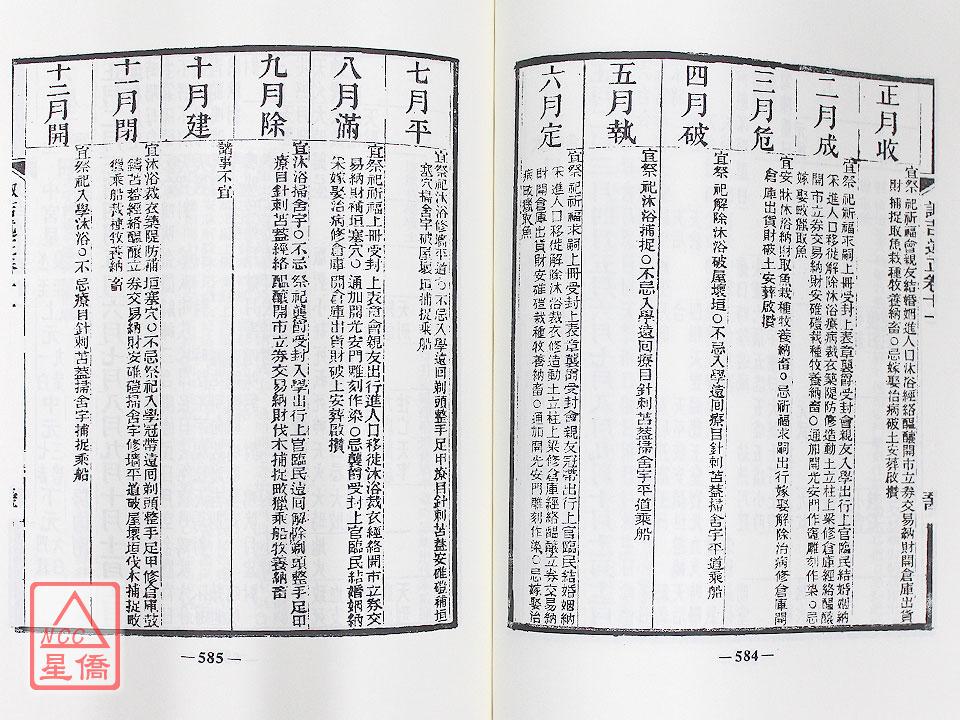 正月收
宜祭祀祈福會親友結婚姻進人口沐浴經絡醞釀開市立券交易納財開倉庫出貨
財捕捉取魚栽種牧養納畜○忌嫁娶治病破土安葬啟攢
二月成
宜祭祀祈福求嗣上冊受封上表章襲爵受封會親友入學出行上官臨民結婚姻納
采進人口移徙解除沐浴療病裁衣築隄防修造動土立柱上梁修倉庫經絡醞釀
開市立券交易納財安碓磑栽種牧養納畜○通加開光安門作竈雕刻作染○忌
嫁娶畋獵取魚
三月危
宜安牀沐浴納財取魚栽種牧養納畜○忌祈福求嗣出行嫁娶解除治病修倉庫開
倉庫出貨財破土安葬啟攢
四月破
宜祭祀解除沐浴破屋壞垣○不忌入學遠回療目針刺苫葢掃舍宇平道乘船
五月執
宜祭祀沐浴捕捉○不忌入學遠回療目針刺苫葢掃舍宇平道乘船
六月定
宜祭祀祈福求嗣上冊受封上表章襲爵受封會親友冠帶出行上官臨民結婚姻納
采進人口移徙解除沐浴裁衣修造動土立柱上梁修倉庫經絡醞釀立券交易納
財開倉庫出貨財安碓磑栽種牧養納畜○通加開光安門雕刻作染○忌嫁娶治
病畋獵取魚
—584—
七月平
宜祭祀沐浴修墻平道○不忌入學遠回剃頭整手足甲療目針刺苫葢安碓磑補垣
塞穴掃舍宇破屋壞垣捕捉乘船
八月滿
宜祭祀祈福上冊受封上表章會親友出行進人口移徙沐浴裁衣經絡開市立券交
易納財補垣塞穴○通加開光安門雕刻作染○忌襲爵受封上官臨民結婚姻納
采嫁娶治病修倉庫開倉庫出貨財破土安葬啟攢
九月除
宜沐浴掃舍宇○不忌祭祀襲爵受封入學出行上官臨民遠回解除剃頭整手足甲
療目針刺苫葢經絡醞釀開市立券交易納財伐木捕捉畋獵乘船牧養納畜
十月建
諸事不宜
十一月閉
宜沐浴裁衣築隄防補垣塞穴○不忌祭祀入學冠帶遠回剃頭整手足甲修倉庫鼓
鑄苫葢經絡醞釀立券交易納財安碓磑掃舍宇修墻平道破屋壞垣伐木捕捉畋
獵乘船栽種牧養納畜
十二月開
宜祭祀入學沐浴○不忌療目針刺苫葢掃舍宇捕捉乘船
—585—
NCC
星僑